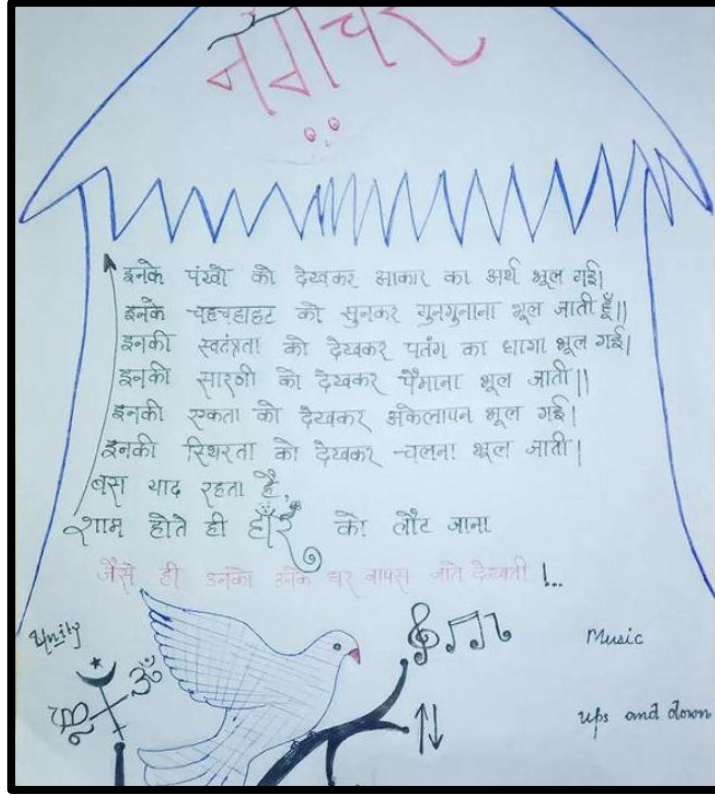 नगीचर
इनके पंखो को देखकर आकार का अर्थ भूल गई।
इनके चहचहाहट को सुनकर गुनगुनाना भूल जाती हूँ||
इनकी स्वतंत्रता को देखकर पतंग का धागा भूल गई।
इनकी सारणी को देखकर पैमाना भूल जाती||
इनकी एकता को देखकर अकेलापन भूल गई।
इनकी स्थिरता को देखकर चलना भूल जाती।
बस याद रहता है,
शाम होते ही को लौट जाना
जैसे ही उनको उनके घर वापस जाते देखती !...
Unity
Music
ॐ
ups and down